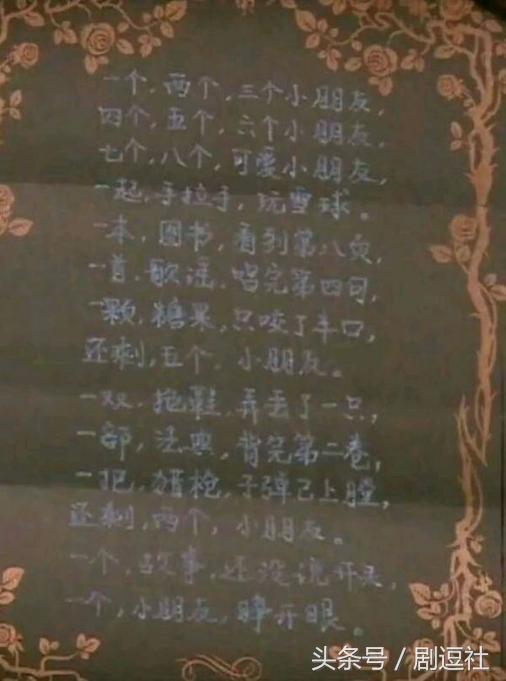 一个,两个,三个小朋友,
四个,五个,六个小朋友,
七个,八个,可爱小朋友,
一起,手拉手,玩雪球。
一本,图书,看到第八页,
一首,歌谣,唱完第四句,
一颗,糖果,只咬了半口,
还剩,五个,小朋友。
一双,拖鞋,弄丢了一只,
一部,法典,背完第二卷,
一把,猎枪,子弹已上膛,
还剩,两个,小朋友。
一个,故事,还没说开头,
一个,小朋友,睁开眼。
头条号 / 剧逗社